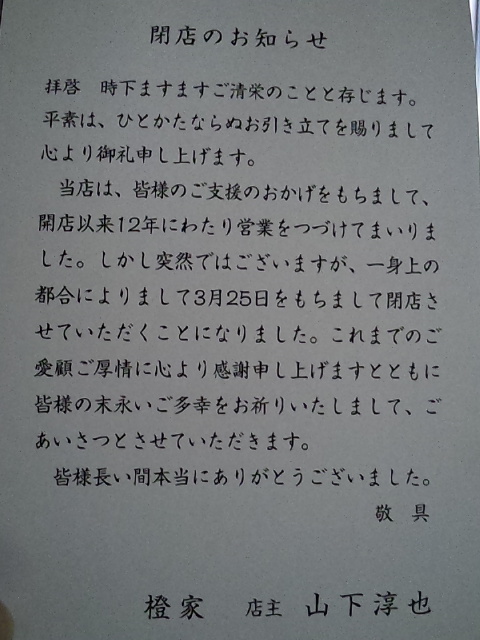 閉店のお知らせ
拝啓　時下ますますご清栄のことと存じます。
平素は、ひとかたならぬお引き立てを賜りまして
心より御礼申し上げます。
　当店は、皆様のご支援のおかげをもちまして、
開店以来12年にわたり営業をつづけてまいりま
した。しかし突然ではございますが、一身上の
都合によりまして3月25日をもちまして閉店さ
せていただくことになりました。これまでのご
愛顧ご厚情に心より感謝申し上げますとともに
皆様の末永いご多幸をお祈りいたしまして、ご
あいさつとさせていただきます。
　皆様長い間本当にありがとうございました。
敬　具
橙家　店主　山下淳也